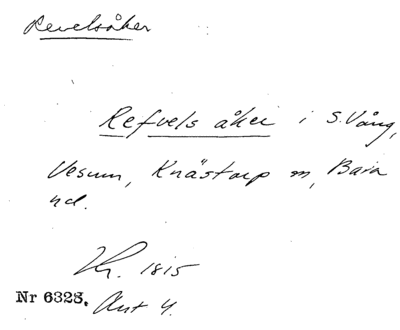 Revelsåker
Refvels åker i S. Vång,
Vesum, Knästorp sn, Bara
hd.
1815
Nr 6328. Akt 4.